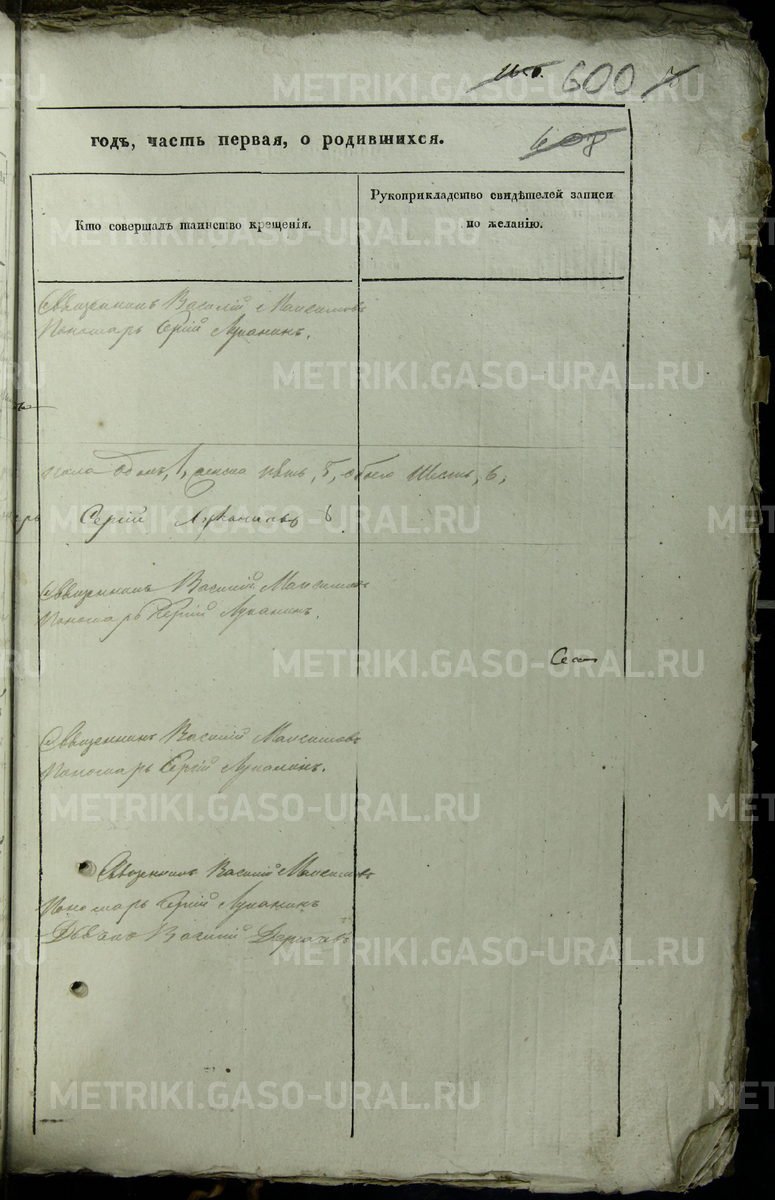 600
608
годъ, часть первая, о родившихся.
Кто совершалъ таинство крещенія.
Рукоприкладство свидѣтелей записи
по желанію.
Священникъ Василій Максимовъ
Пономарь Сергій Луканинъ.
пола одинъ, 1, женска пять, 5, обоего шесть, 6,
Сергій Луканинъ
Священникъ Василій Максимовъ
Пономарь Сергій Луканинъ.
Священникъ Василій Максимовъ
Пономарь Сергій Луканинъ.
Священникъ Василій Максимовъ
Пономарь Сергій Луканинъ
Дьячекъ Василій
METRIKI.GASO-URAL.RU